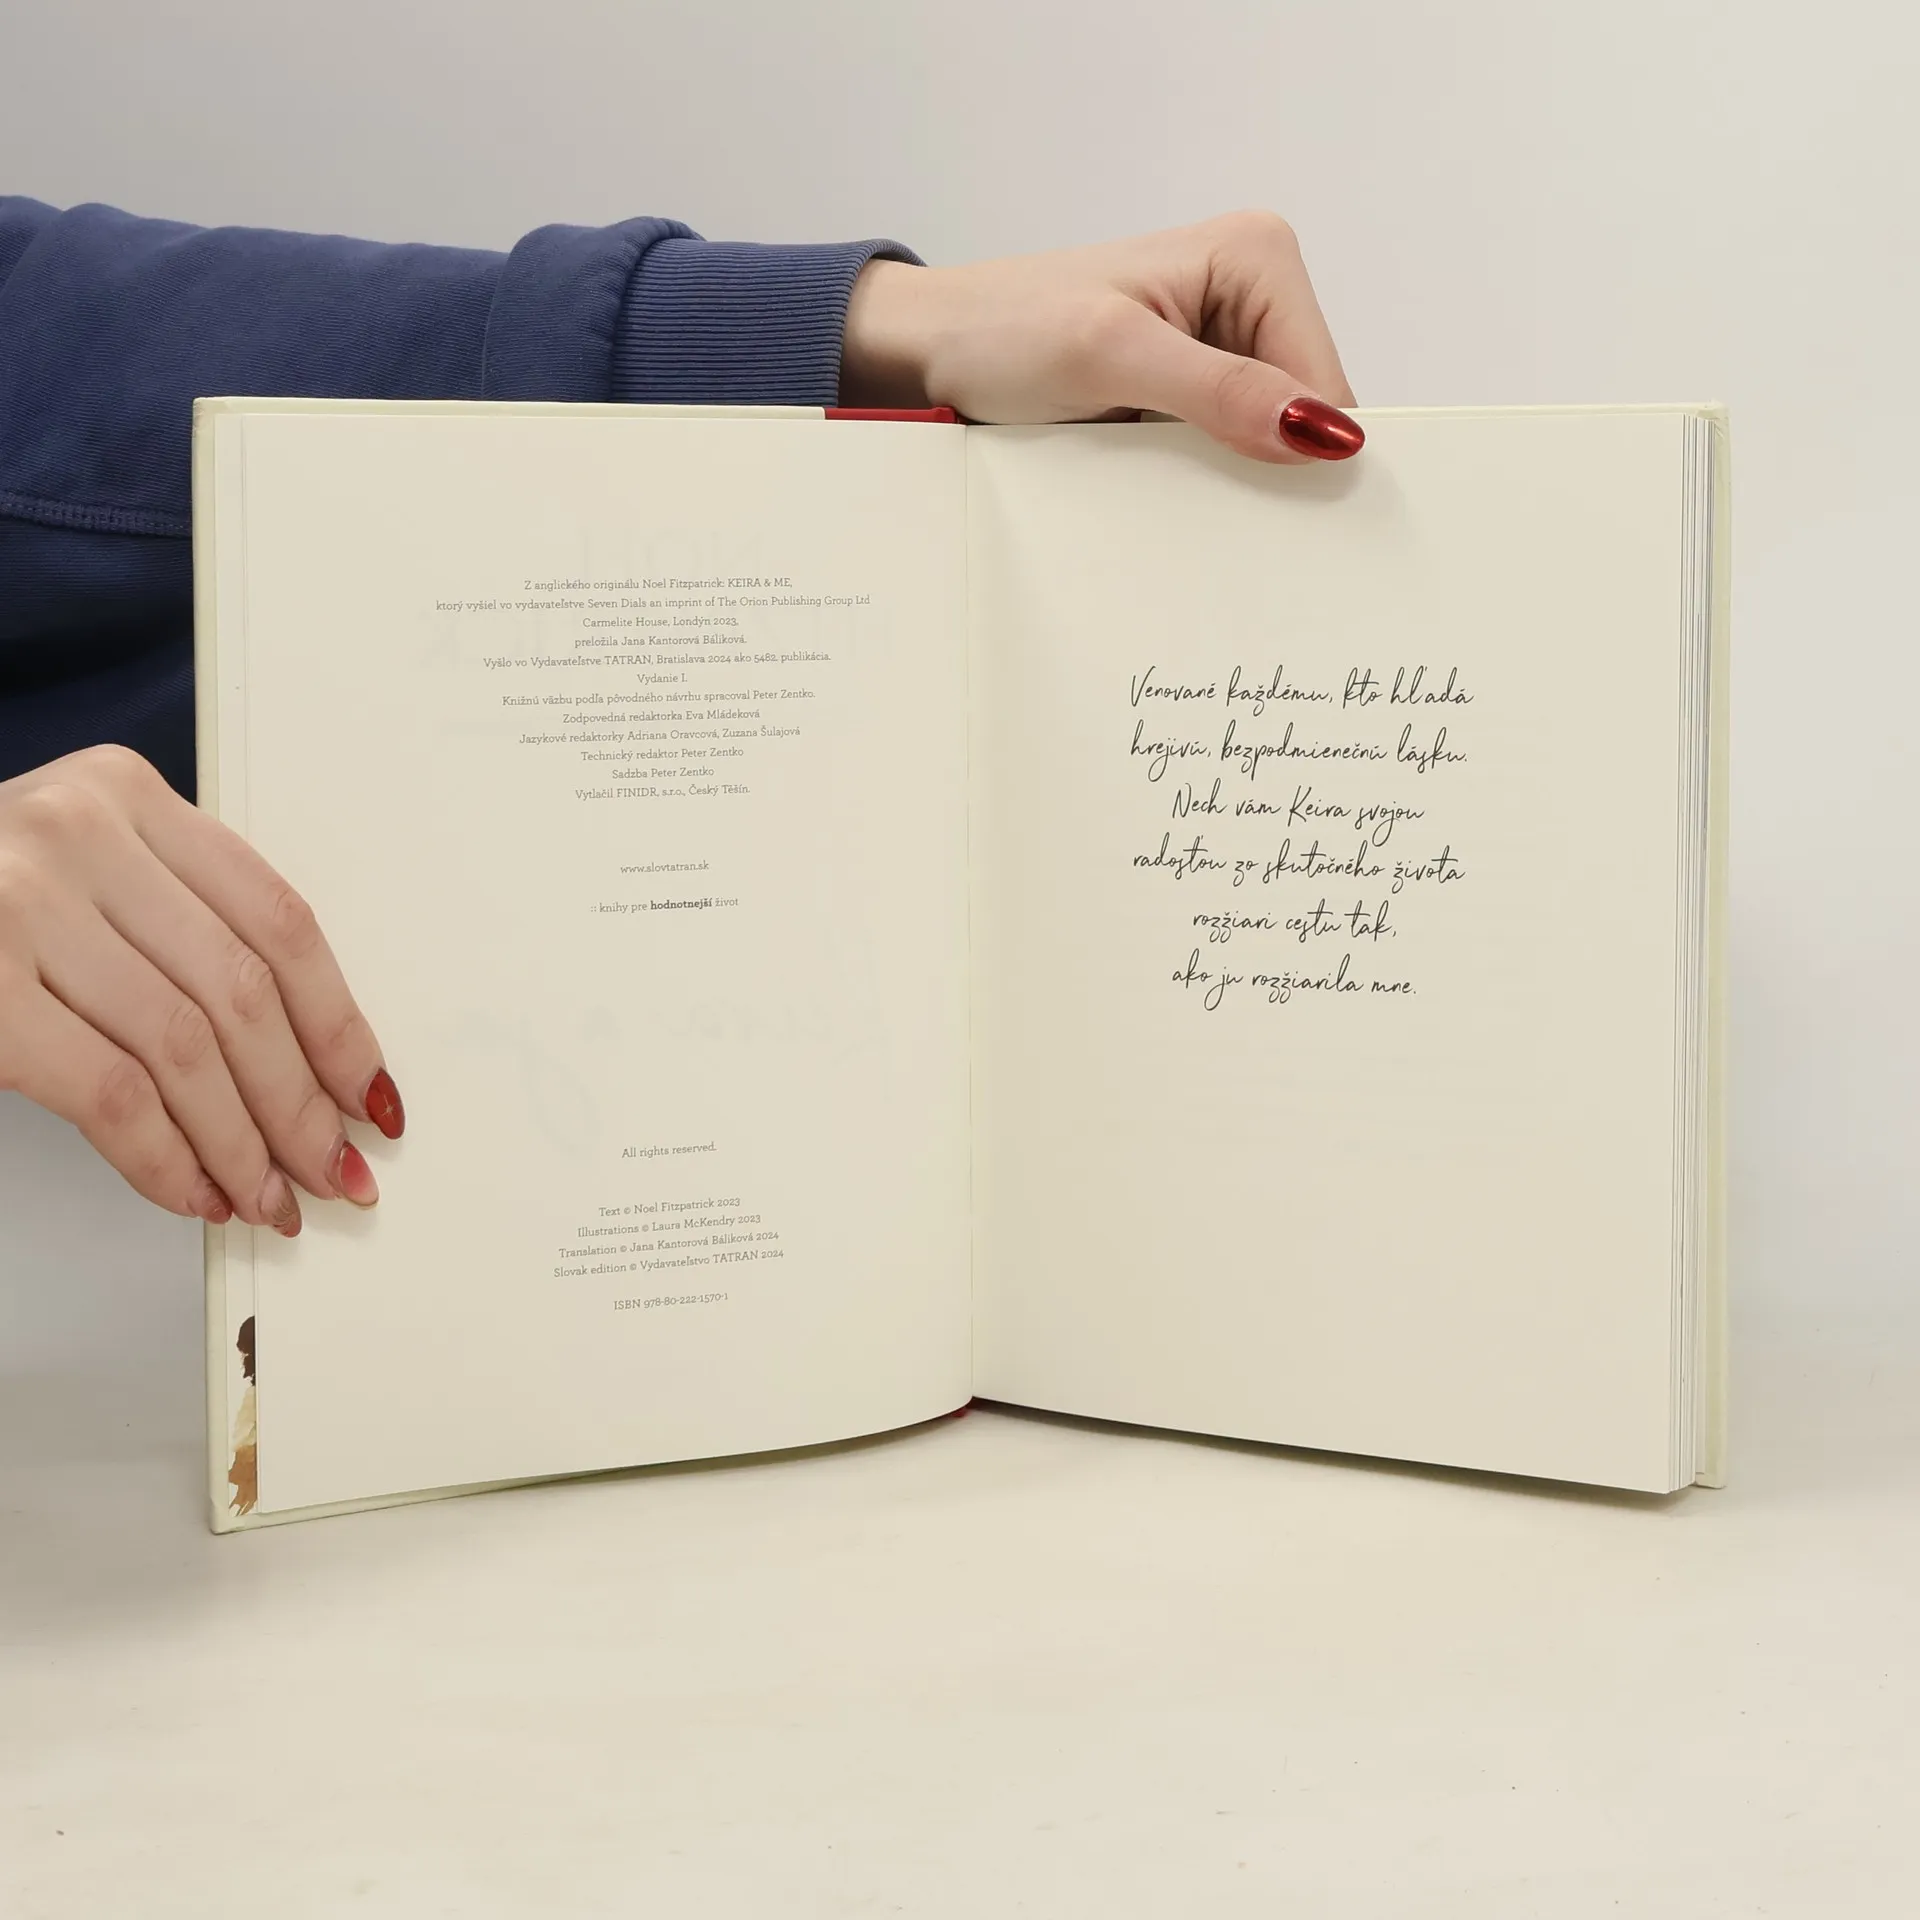 Z anglického originálu Noel Fitzpatrick: KEIRA & ME,
ktorý vyšiel vo vydavateľstve Seven Dials an imprint of The Orion Publishing Group Ltd
Carmelite House, Londýn 2023,
preložila Jana Kantorová Báliková.
Vyšlo vo Vydavateľstve TATRAN, Bratislava 2024 ako 5482. publikácia.
Vydanie I.
Knižnú väzbu podľa pôvodného návrhu spracoval Peter Zentko.
Zodpovedná redaktorka Eva Mládeková
Jazykové redaktorky Adriana Oravcová, Zuzana Šulajová
Technický redaktor Peter Zentko
Sadzba Peter Zentko
Vytlačil FINIDR, s.r.o., Český Těšín.
www.slovtatran.sk
:: knihy pre hodnotnejší život
All rights reserved.
Text © Noel Fitzpatrick 2023
Illustrations © Laura McKendry 2023
Translation © Jana Kantorová Báliková 2024
Slovak edition © Vydavateľstvo TATRAN 2024
ISBN 978-80-222-1570-1
Venované každému, kto hľadá
hrejivú, bezpodmienečnú lásku.
Nech vám Keira svojou
radosťou zo skutočného života
rozžiari cestu tak,
ako ju rozžiarila mne.